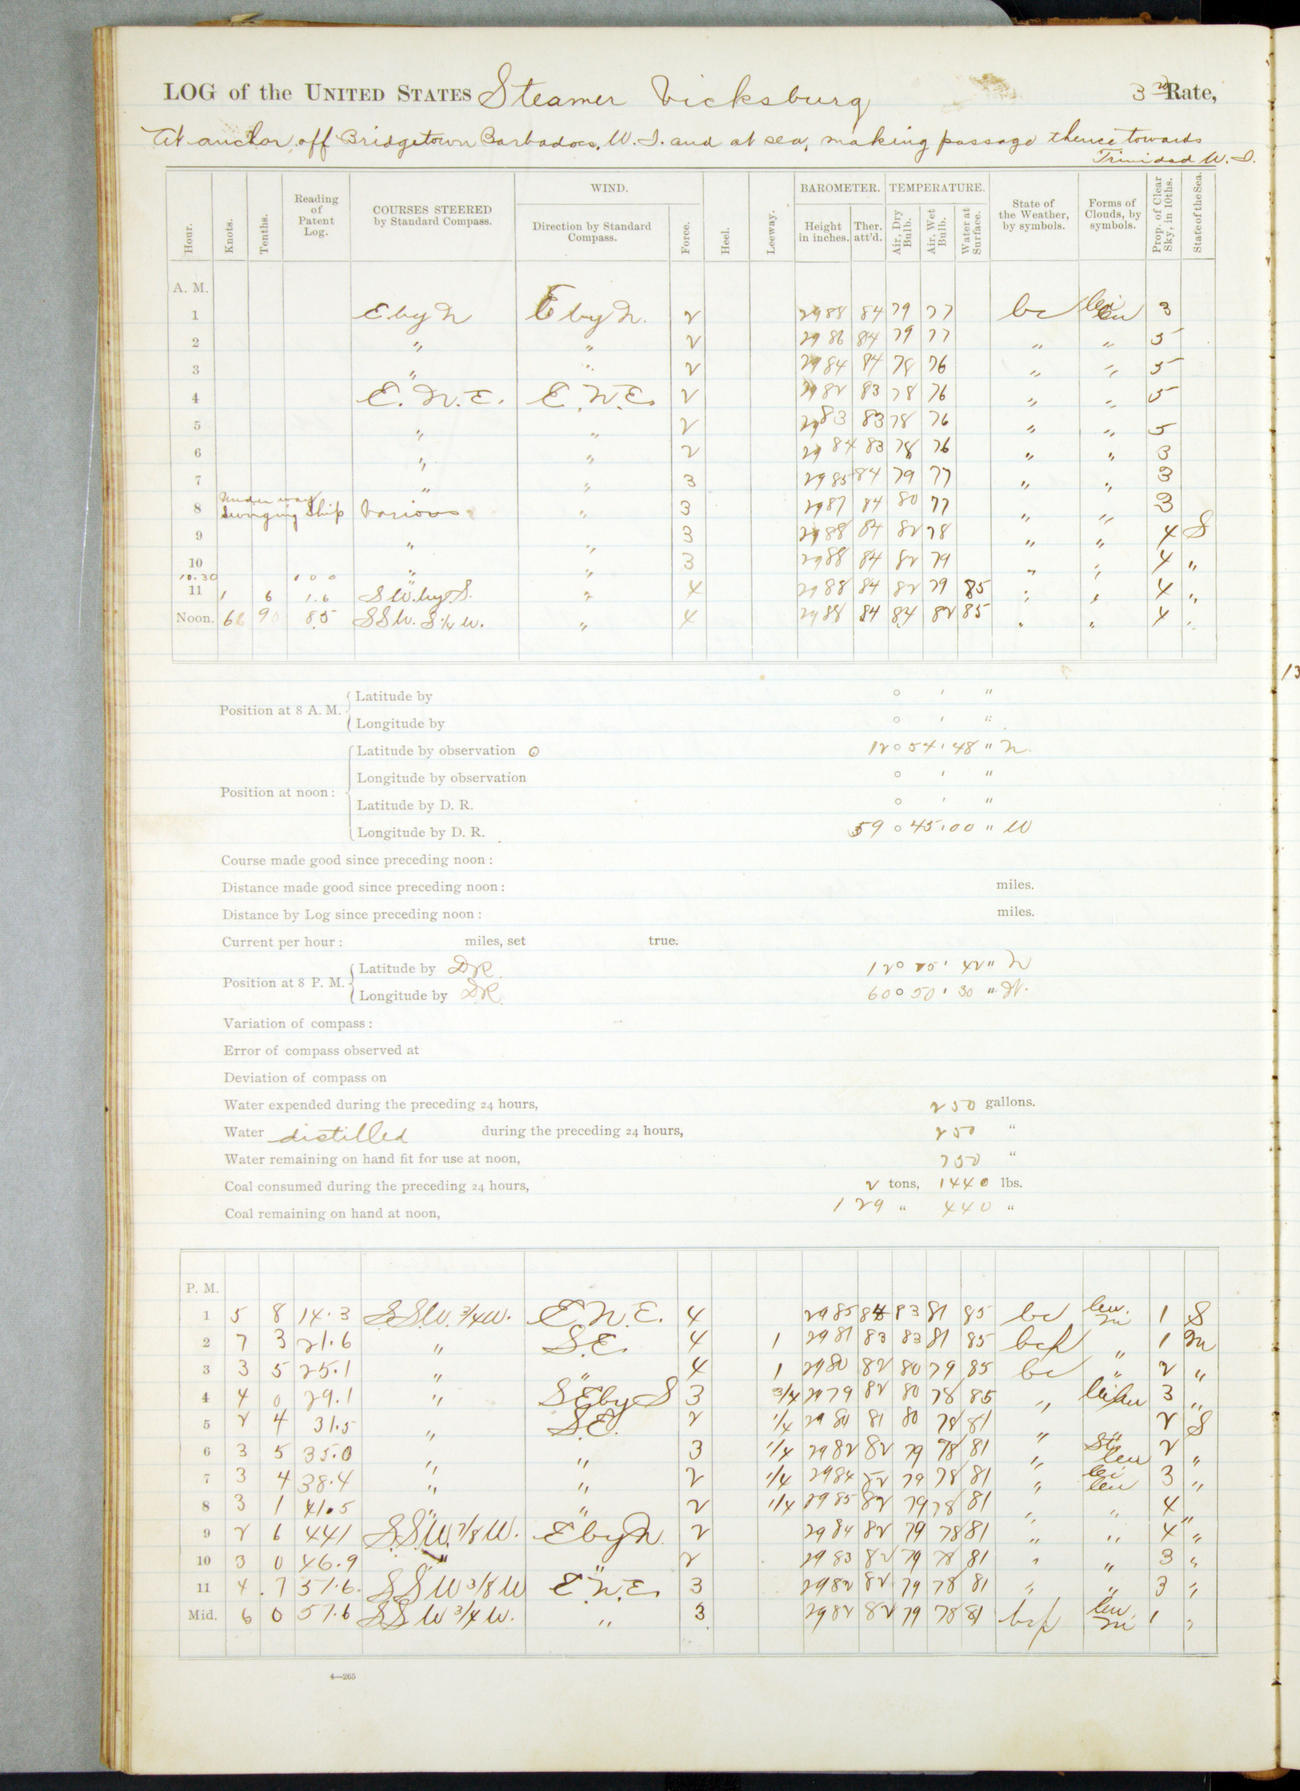 LOG of the UNITED STATES Steamer Vicksburg 3rd Rate,
At anchor off Bridgetown Barbadoes, W. I. and at sea, making passage thence towards
Trinidad W. I.
Hour. Knots. Tenths. Reading of Patent Log. COURSES STEERED by Standard Compass. WIND. Direction by Standard Compass. Force. Heel. Leeway. BAROMETER. Height in inches. Ther. att'd. TEMPERATURE. Air, Dry Bulb. Air, Wet Bulb. Water at Surface. State of the Weather, by symbols. Forms of Clouds, by symbols. Prop. of Clear Sky, in 10ths. State of the Sea.
A. M.
1 E by N E by N. 2 29 88 84 79 77 bc 3
2 " " 2 29 86 84 79 77 " " 5
3 " " 2 29 84 84 78 76 " " 5
4 E. N. E. E. N. E. 2 29 82 83 78 76 " " 5
5 " " 2 29 83 83 78 76 " " 5
6 " " 2 29 84 83 78 76 " " 3
7 " " 3 29 85 84 79 77 " " 3
Under way
8 Swinging Ship Various " 3 29 87 84 80 77 " " 3
9 " " 3 29 88 84 82 78 " " 4 S
10 " " 3 29 88 84 82 79 " " 4 "
10.30 0 0 0
11 1 6 1.6 SW. by S. " 4 29 88 84 82 79 85 " " 4 "
Noon. 6 90 8.5 SSW. 3/4 W. " 4 29 88 84 84 82 85 " " 4 "
Position at 8 A. M. Latitude by ° ' "
Longitude by ° ' "
Position at noon: Latitude by observation ⊙ 12 ° 54 ' 48 " N.
Longitude by observation ° ' "
Latitude by D. R. ° ' "
Longitude by D. R. 59 ° 45 ' 00 " W
Course made good since preceding noon:
Distance made good since preceding noon: miles.
Distance by Log since preceding noon: miles.
Current per hour: miles, set true.
Position at 8 P. M. Latitude by DR 12 ° ' 42 " N
Longitude by DR 60 ° 50 ' 30 " W.
Variation of compass:
Error of compass observed at
Deviation of compass on
Water expended during the preceding 24 hours, 250 gallons.
Water distilled during the preceding 24 hours, 250 "
Water remaining on hand fit for use at noon, 750 "
Coal consumed during the preceding 24 hours, 2 tons, 1440 lbs.
Coal remaining on hand at noon, 129 " 440 "
P. M.
1 5 8 14.3 S.S.W. 3/4 W. E. N. E. 4 29 85 84 83 81 85 bc cu. ni 1 S
2 7 3 21.6 " S.E. 4 1 29 81 83 83 81 85 bcp " 1 M
3 3 5 25.1 " " 4 1 29 80 82 80 79 85 bc " 2 "
4 4 0 29.1 " SE by S 3 3/4 29 79 82 80 78 85 " 3 "
5 2 4 31.5 " S.E. 2 1/4 29 80 81 80 78 81 " " 2 S
6 3 5 35.0 " " 3 1/4 29 82 82 79 78 81 " cu 2 "
7 3 4 38.4 " " 2 1/4 29 84 82 79 78 81 " ci cu 3 "
8 3 1 41.5 " " 2 1/4 29 85 82 79 78 81 " " 4 "
9 2 6 441 S.S.W. 7/8 W. E by N. 2 29 84 82 79 78 81 " " 4 "
10 3 0 46.9 " " 2 29 83 82 79 78 81 " " 3 "
11 4 .7 51.6. SSW 3/8 W E. N. E. 3 29 82 82 79 78 81 " " 3 "
Mid. 6 0 57.6 SSW 3/4 W. " 3 29 82 82 79 78 81 bcp cu. ni 1 "
4—265
13